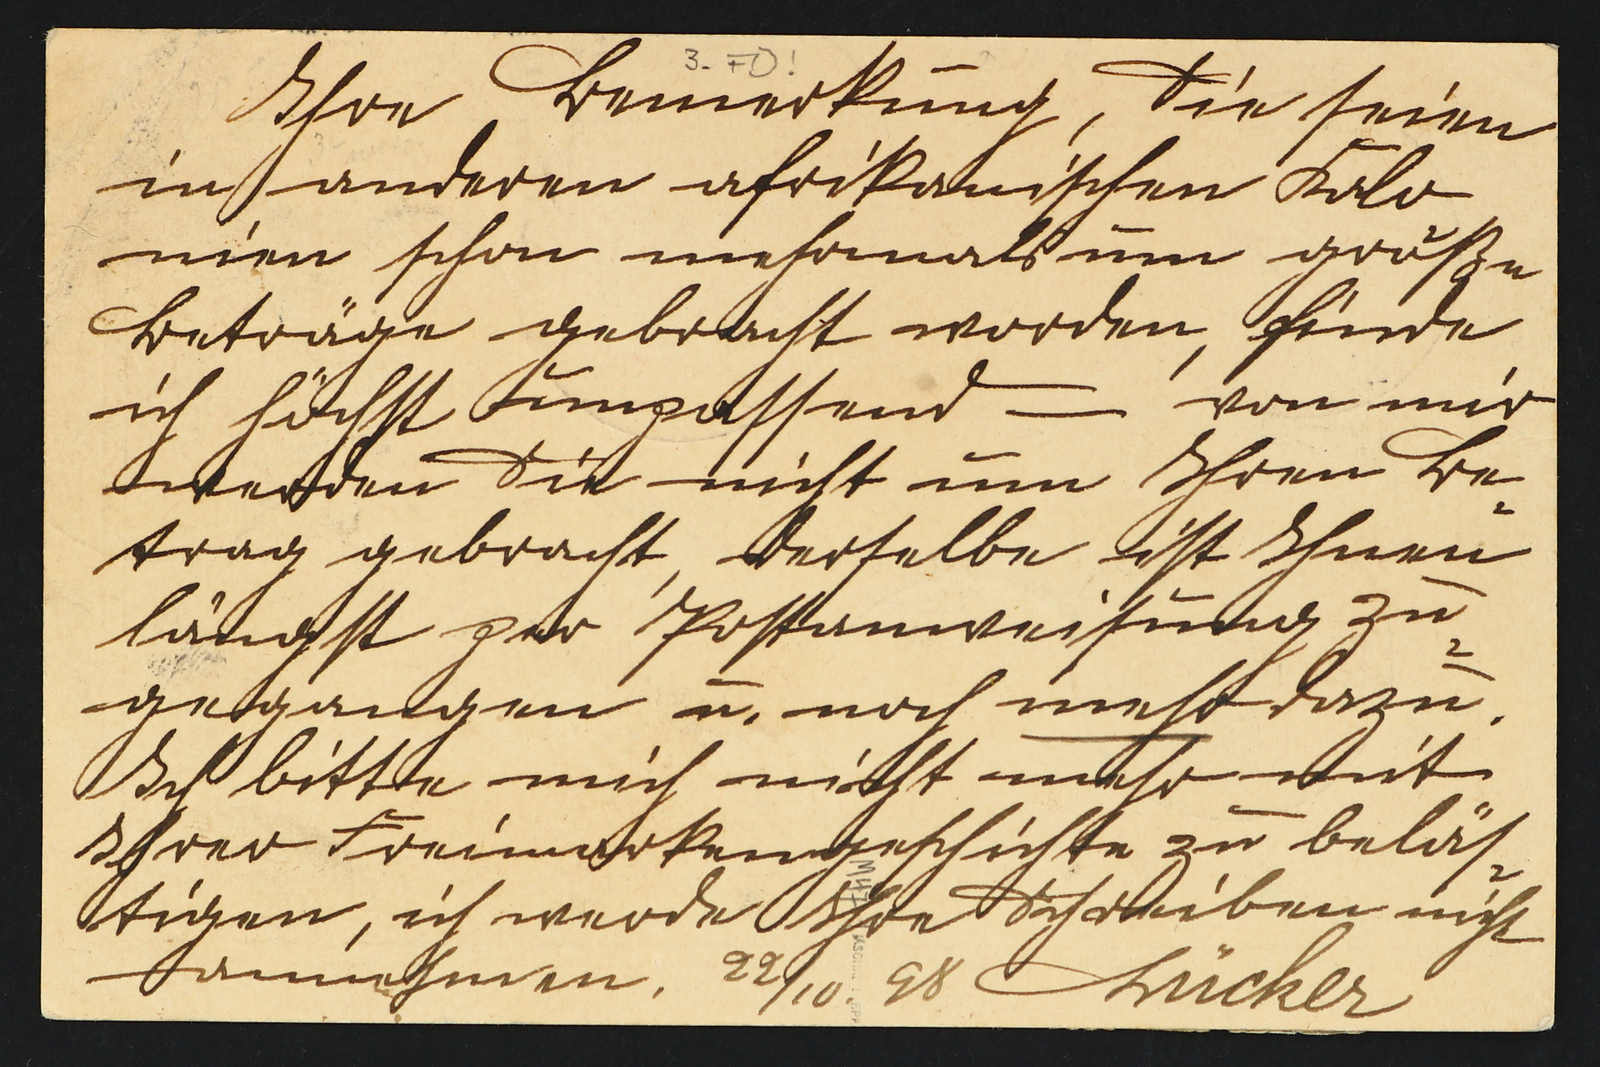 3.- FD!
Ihre Bemerkung, Sie seien
in anderen afrikanischen Kolo
nien schon mehrmals um große
Beträge gebracht worden, finde
ich höchst unpassend — von mir
werden Sie nicht um Ihren Be-
trag gebracht, derselbe ist Ihnen
längst per Postanweisung zu-
gegangen u. noch mehr dazu.
Ich bitte mich nicht mehr mit
Ihrer Freimarkengeschichte zu beläs-
tigen, ich werde Ihre Schreiben nicht
annehmen. 22/10. 98 Lücker